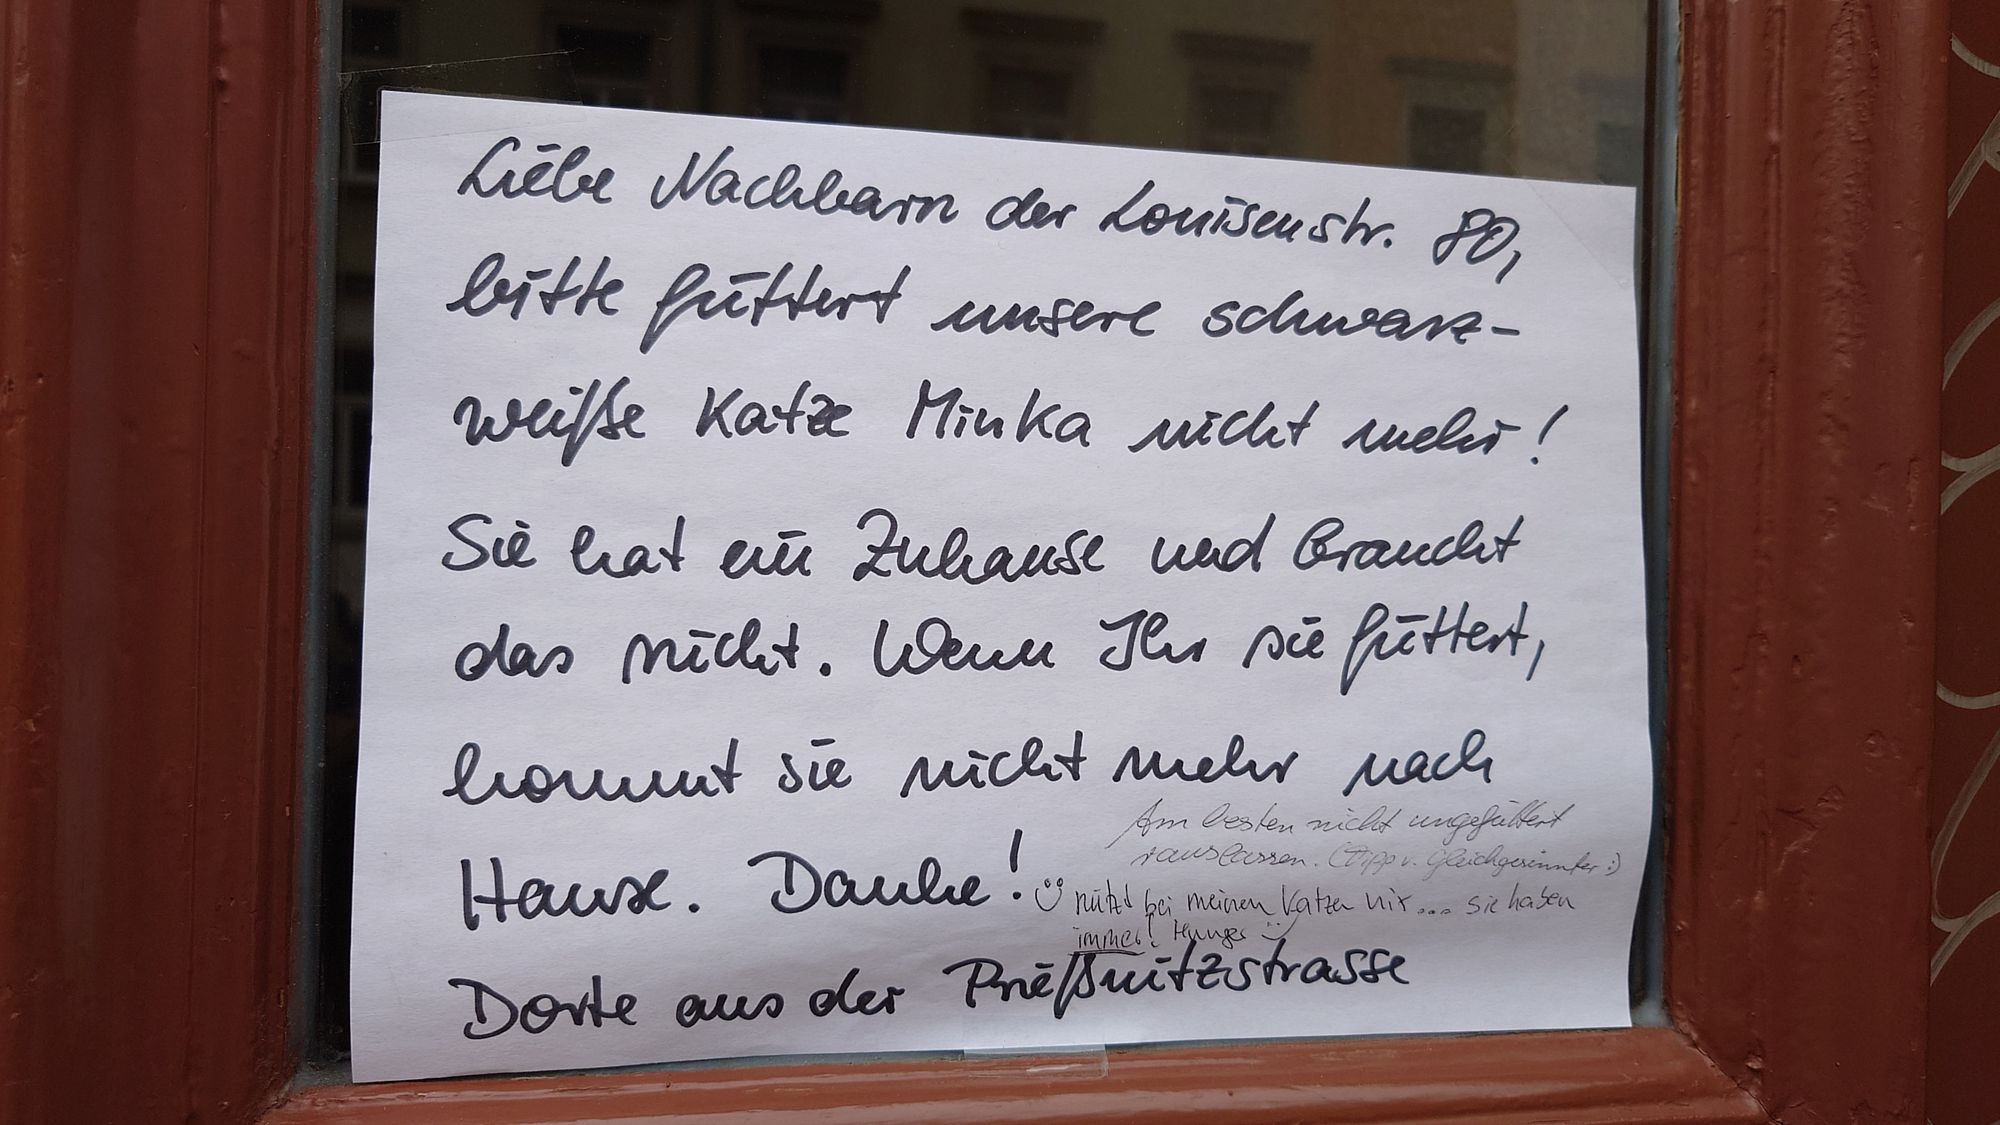 Liebe Nachbarn der Louisenstr. 80,
bitte füttert unsere schwarz-
weiße Katze Minka nicht mehr!
Sie hat ein Zuhause und braucht
das nicht. Wenn Ihr sie füttert,
kommt sie nicht mehr nach
Hause. Danke!
Am besten nicht ungefüttert
rauslassen. (Tipp v. Gleichgesinnter :)
nützt bei meinen Katzen nix... sie haben
immer! Hunger
Dorte aus der Prießnitzstrasse